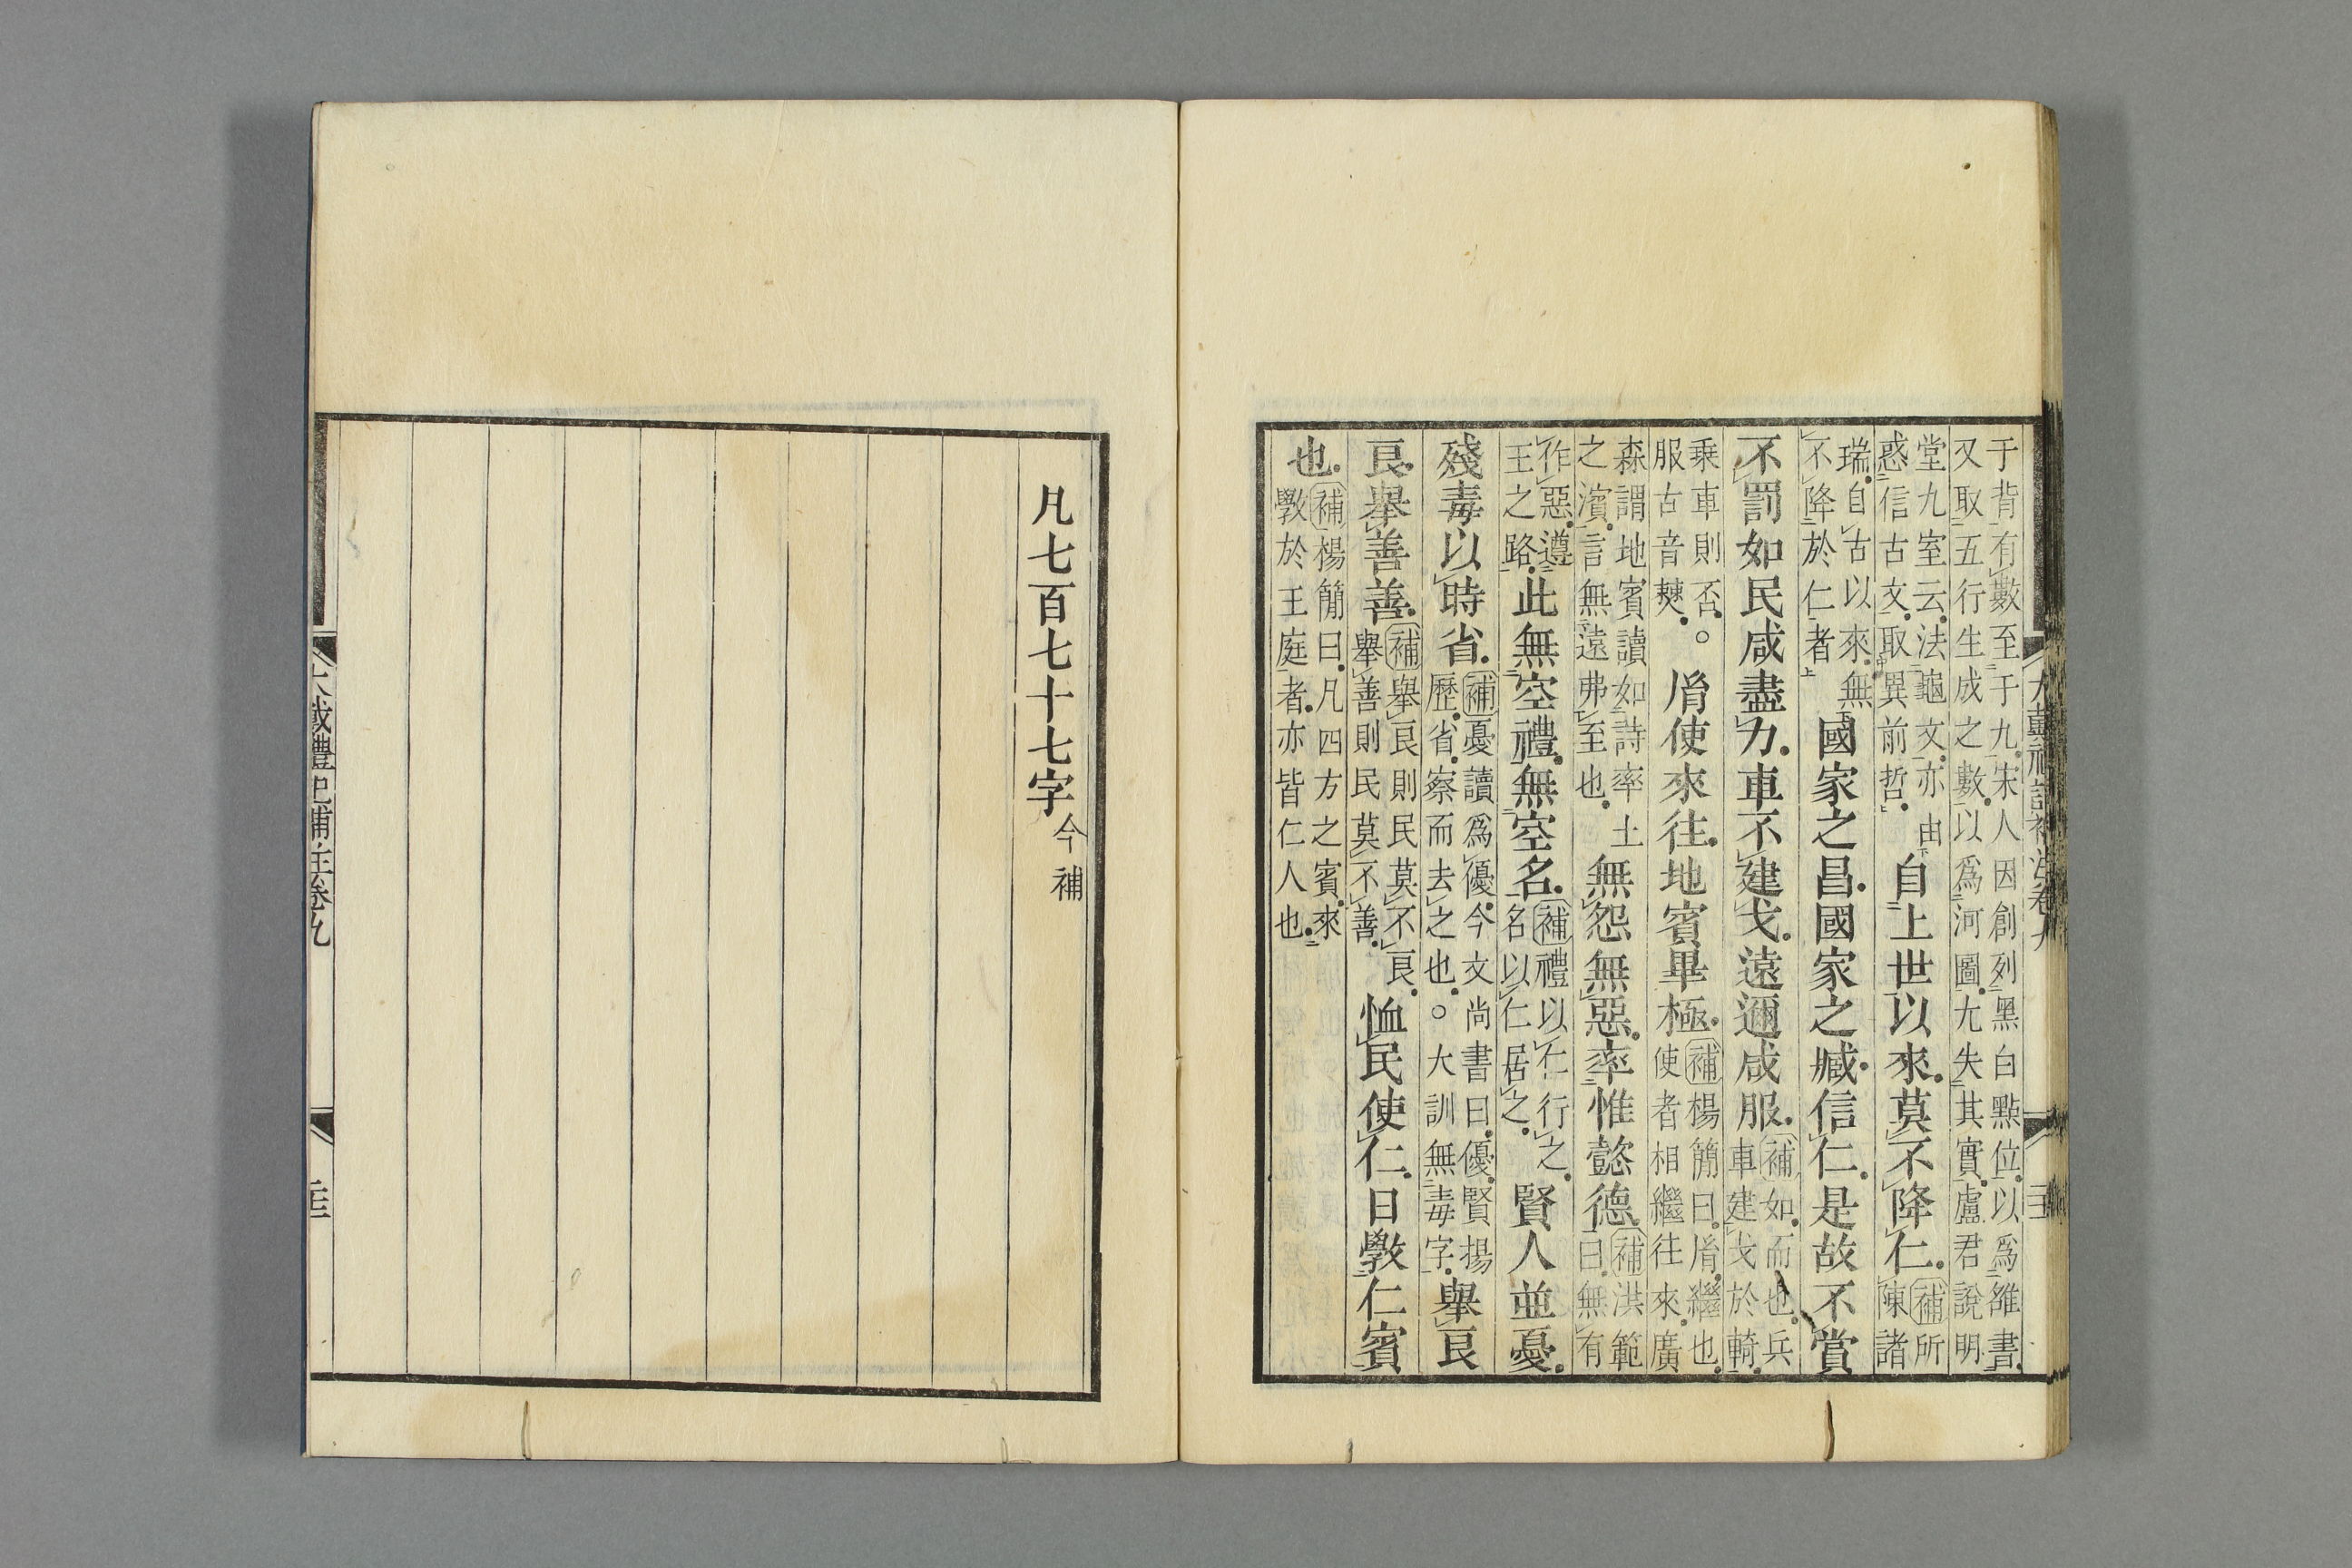 于背有數至于九宋人因創列黑白點位以爲雒書
又取五行生成之數以爲河圖尤失其實盧君說明
堂九室云法龜文亦由
惑信古文取異前哲
自上世以來莫不降仁
補所
陳諸
瑞自古以來無
不降於仁者
國家之昌國家之臧信仁是故不賞
不罰如民咸盡力車不建戈遠邇咸服
補如而也兵
車建戈於輢
乗車則否○
服古音㒒
胤使來往地賓畢極
補楊簡曰胤繼也
使者相繼往來廣
森謂地賓讀如詩率土
之濱言無遠弗至也
無怨無惡率惟懿德
補洪範
曰無有
作惡遵
王之路
此無空禮無空名
補禮以仁行之
名以仁居之
賢人並憂
殘毒以時省
補憂讀爲優今文尚書曰優賢揚
歷省察而去之也○大訓無毒字
舉良
良舉善善
補舉良則民莫不良
舉善則民莫不善
恤民使仁日斆仁賓
也
補楊簡曰凡四方之賓來
斆於王庭者亦皆仁人也
凡七百七十七字今補
大戴禮記補注卷九